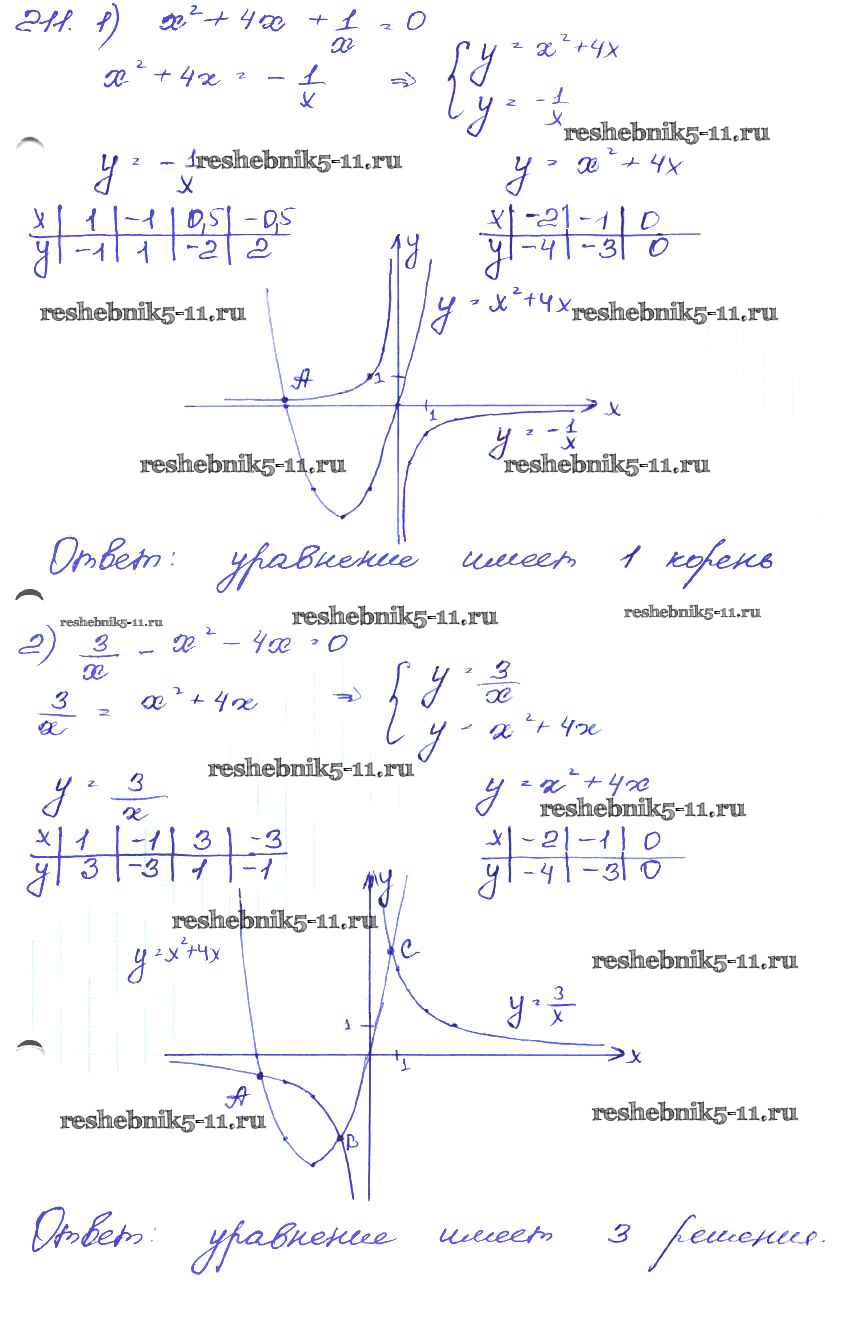 211. 1) x² + 4x + 1/x = 0
x² + 4x = - 1/x ⇒ { y = x² + 4x
y = - 1/x
reshebnik5-11.ru
y = - 1/x reshebnik5-11.ru y = x² + 4x
x | 1 | -1 | 0,5 | -0,5
y | -1 | 1 | -2 | 2
x | -2 | -1 | 0
y | -4 | -3 | 0
y
reshebnik5-11.ru y = x² + 4x reshebnik5-11.ru
A 1
1 x
y = - 1/x
reshebnik5-11.ru reshebnik5-11.ru
Ответ: уравнение имеет 1 корень
reshebnik5-11.ru reshebnik5-11.ru reshebnik5-11.ru
2) 3/x - x² - 4x = 0
3/x = x² + 4x ⇒ { y = 3/x
y = x² + 4x
reshebnik5-11.ru
y = 3/x y = x² + 4x
reshebnik5-11.ru
x | 1 | -1 | 3 | -3
y | 3 | -3 | 1 | -1
x | -2 | -1 | 0
y | -4 | -3 | 0
y
reshebnik5-11.ru
y = x² + 4x C reshebnik5-11.ru
y = 3/x
1
1 x
A
reshebnik5-11.ru reshebnik5-11.ru
B
Ответ: уравнение имеет 3 решения.